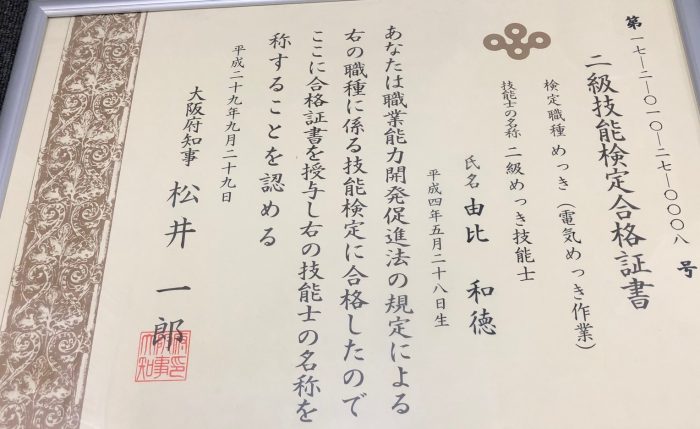 第一七―二―〇一〇―二七―〇〇〇八号
二級技能検定合格証書
検定職種 めっき(電気めっき作業)
技能士の名称 二級めっき技能士
氏名 由比 和徳
平成四年五月二十八日生
あなたは職業能力開発促進法の規定による
右の職種に係る技能検定に合格したので
ここに合格証書を授与し右の技能士の名称を
称することを認める
平成二十九年九月二十九日
大阪府知事 松井 一郎